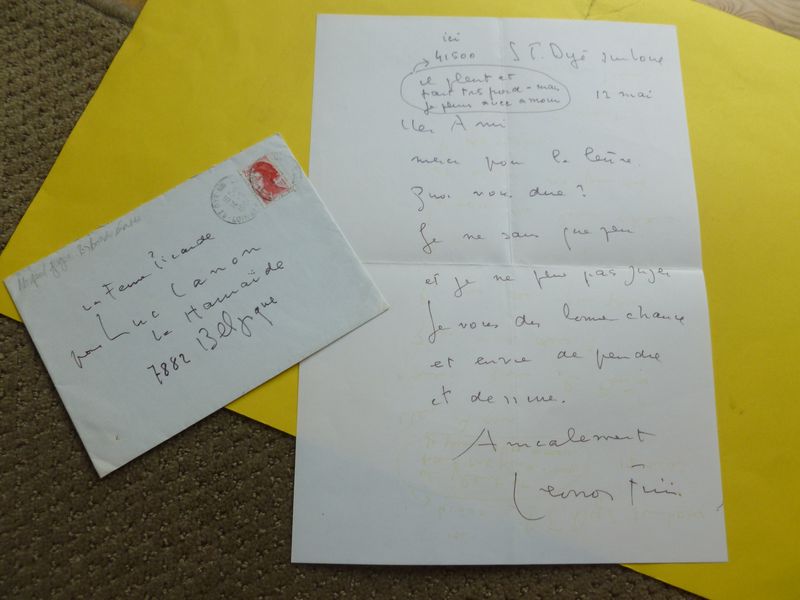 ici
41500 ST. Dyé sur Loire
il pleut et
fait très froid - mais
je peins avec amour
12 mai
Cher Ami
merci pour la lettre.
Quoi vous dire?
Je ne sais que peu
et je ne peux pas juger
Je vous dis bonne chance
et envie de peindre
et dessiner.
Amicalement
Leonor Fini
La Ferme Picarde
pour Luc Canon
la Hamaïde
7882 Belgique